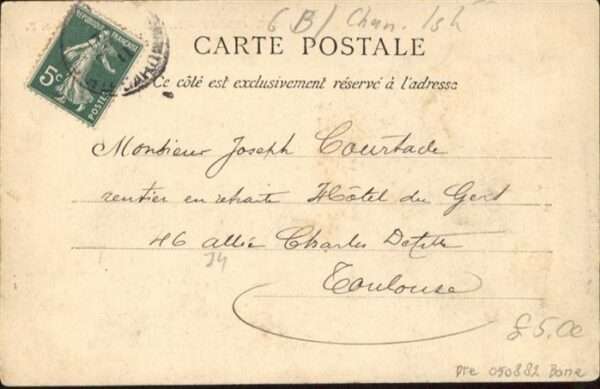 6 B/ Chan.
RÉPUBLIQUE FRANÇAISE
5c
POSTES
CARTE POSTALE
Ce côté est exclusivement réservé à l'adresse
Monsieur Joseph Courtade
rentier en retraite Hôtel du Gers
46 allée Charles
34
Toulouse
£5.00
Dre 050882 Bone